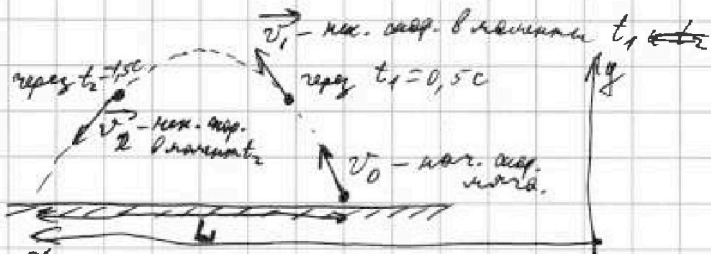 v₁ - нек. скор. в моменты t₁ и t₂
через t₂=1,5с
через t₁=0,5с
y
v₂ - нек. скор.
в момент t₂
v₀ - нач. скор.
мяча.
L